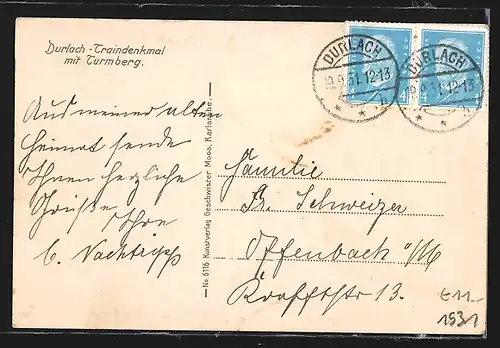 Durlach - Traindenkmal
mit Turmberg.
DURLACH
19.9.31.12-13
* * b
DURLACH
19.9.31.12-13
* * b
Aus meiner alten
Heimat sende
Ihnen herzliche
Grüße, Ihre
No 6116 Kunstverlag Geschwister Moos, Karlsruhe.
Familie
Fr. Schweizer
Offenbach a/M
13.
€ 11.-
1931